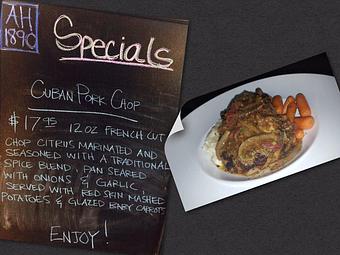 AH
1890
Specials
CUBAN PORK CHOP
$17.95 12OZ FRENCH CUT
CHOP CITRUS MARINATED AND
SEASONED WITH A TRADITIONAL
SPICE BLEND, PAN SEARED
WITH ONIONS & GARLIC,
SERVED WITH RED SKIN MASHED
POTATOES & GLAZED BABY CARROTS
ENJOY!